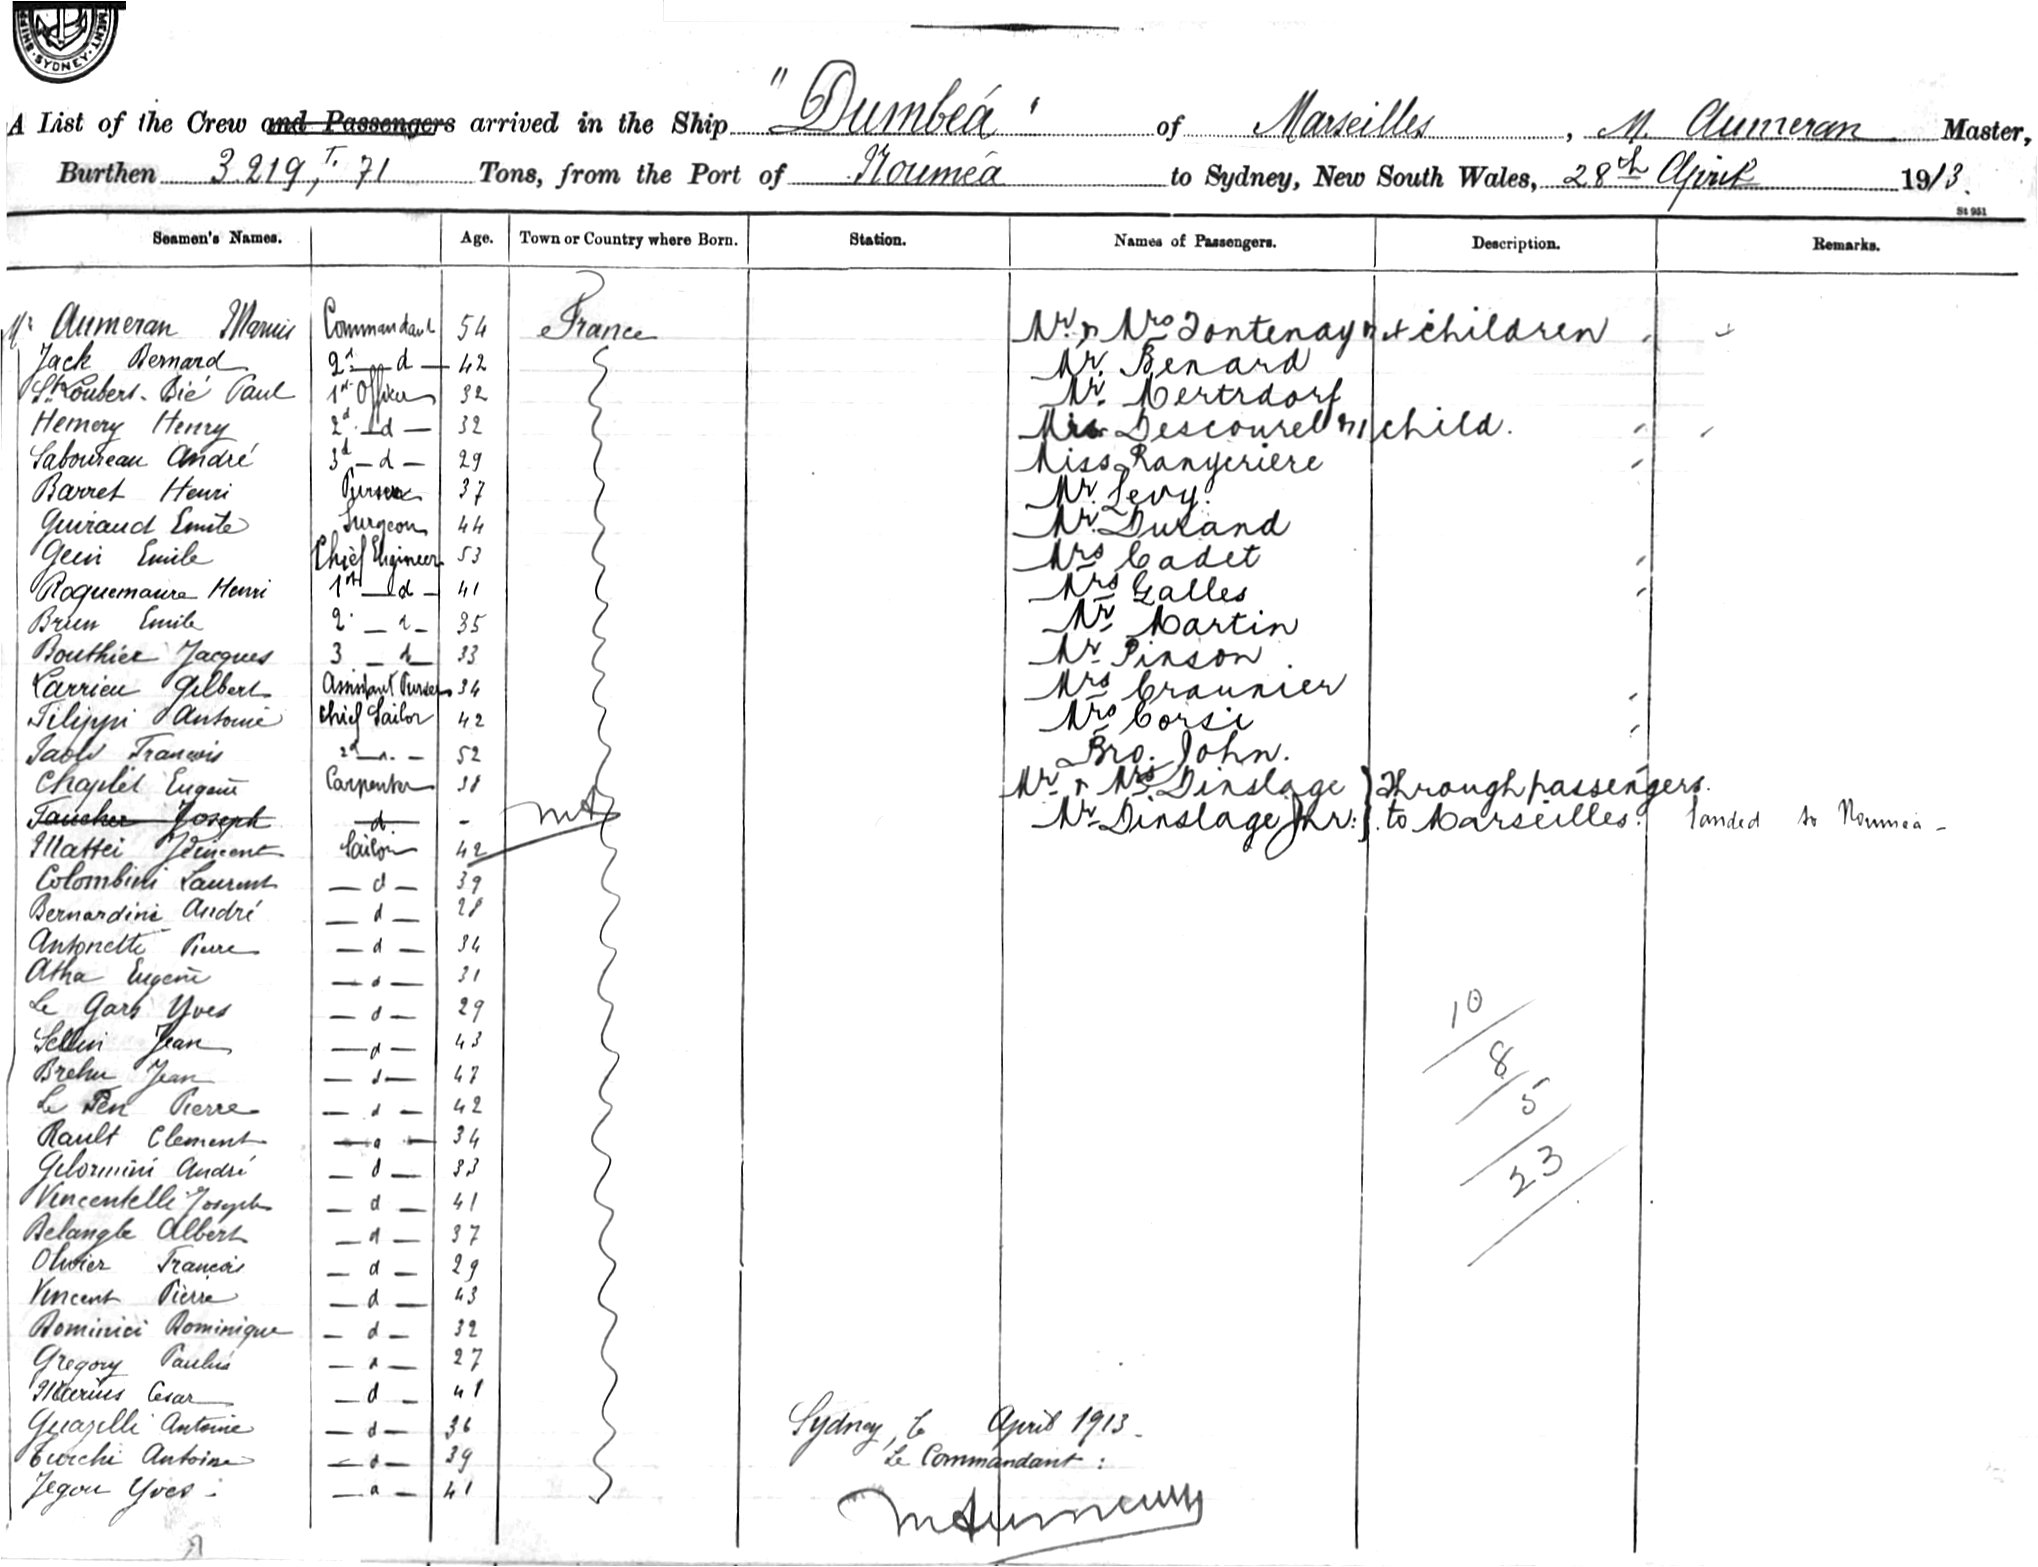 MENT. SYDNEY. SHIP
A List of the Crew and Passengers arrived in the Ship "Dumbéa" of Marseilles, M. Aumeran Master,
Burthen 3219, T. 71 Tons, from the Port of Nouméa to Sydney, New South Wales, 28th April 1913.
St 951
Seamen's Names. Age. Town or Country where Born. Station. Names of Passengers. Description. Remarks.
Mr Aumeran Marius Commandant 54 France Mr & Mrs Fontenay & children
Jack Bernard 2d d 42 Mr. Benard
St Loubert. Bié Paul 1st Officer 32 Mr.
Hemery Henry 2d d 32 Descourel child.
Laboureau André 3d d 29 Miss
Barret Henri Purser 37 Mr. Levy.
Guiraud Emile Surgeon 44 Mr. Durand
Gein Emile Chief Engineer 53 Mrs Cadet
Roquemaure Henri 1st d 41 Mrs Galles
Brun Emile 2 d 35 Mr Martin
Bouthier Jacques 3 d 33 Mr Pinson
Larrieu Gilbert Assistant Purser 34 Mrs Craunier
Filippi Antoine Chief Sailor 42 Mrs Corsi
Paoli Francois 2d 52 Bro. John.
Chaplet Eugene Carpenter 38 Mr & Mrs Dinslage } Through passengers.
Faucher Joseph d - MA Mr Dinslage Jnr: } to Marseilles. landed to Noumea -
Mattei Vincent Sailor 42
Colombini Laurent d 39
Bernardini André d 28
Antonetti Pierre d 34
Atha Eugene d 31
Le Gars Yves d 29
Sellin Jean d 43
Brehu Jean d 47
Le Pen Pierre d 42
Rault Clement d 34
Gilormini André d 33
Vincentelli Joseph d 41
Belangle Albert d 37
Olivier Francois d 29
Vincent Pierre d 43
Dominici Dominique d 32
Gregory Paulus d 27
Marius Cesar d 41
Guazelli Antoine d 36
Turchi Antoine d 39
Jegou Yves d 41
10
8
5
23
Sydney, le April 1913.
Le Commandant :
MAumeran